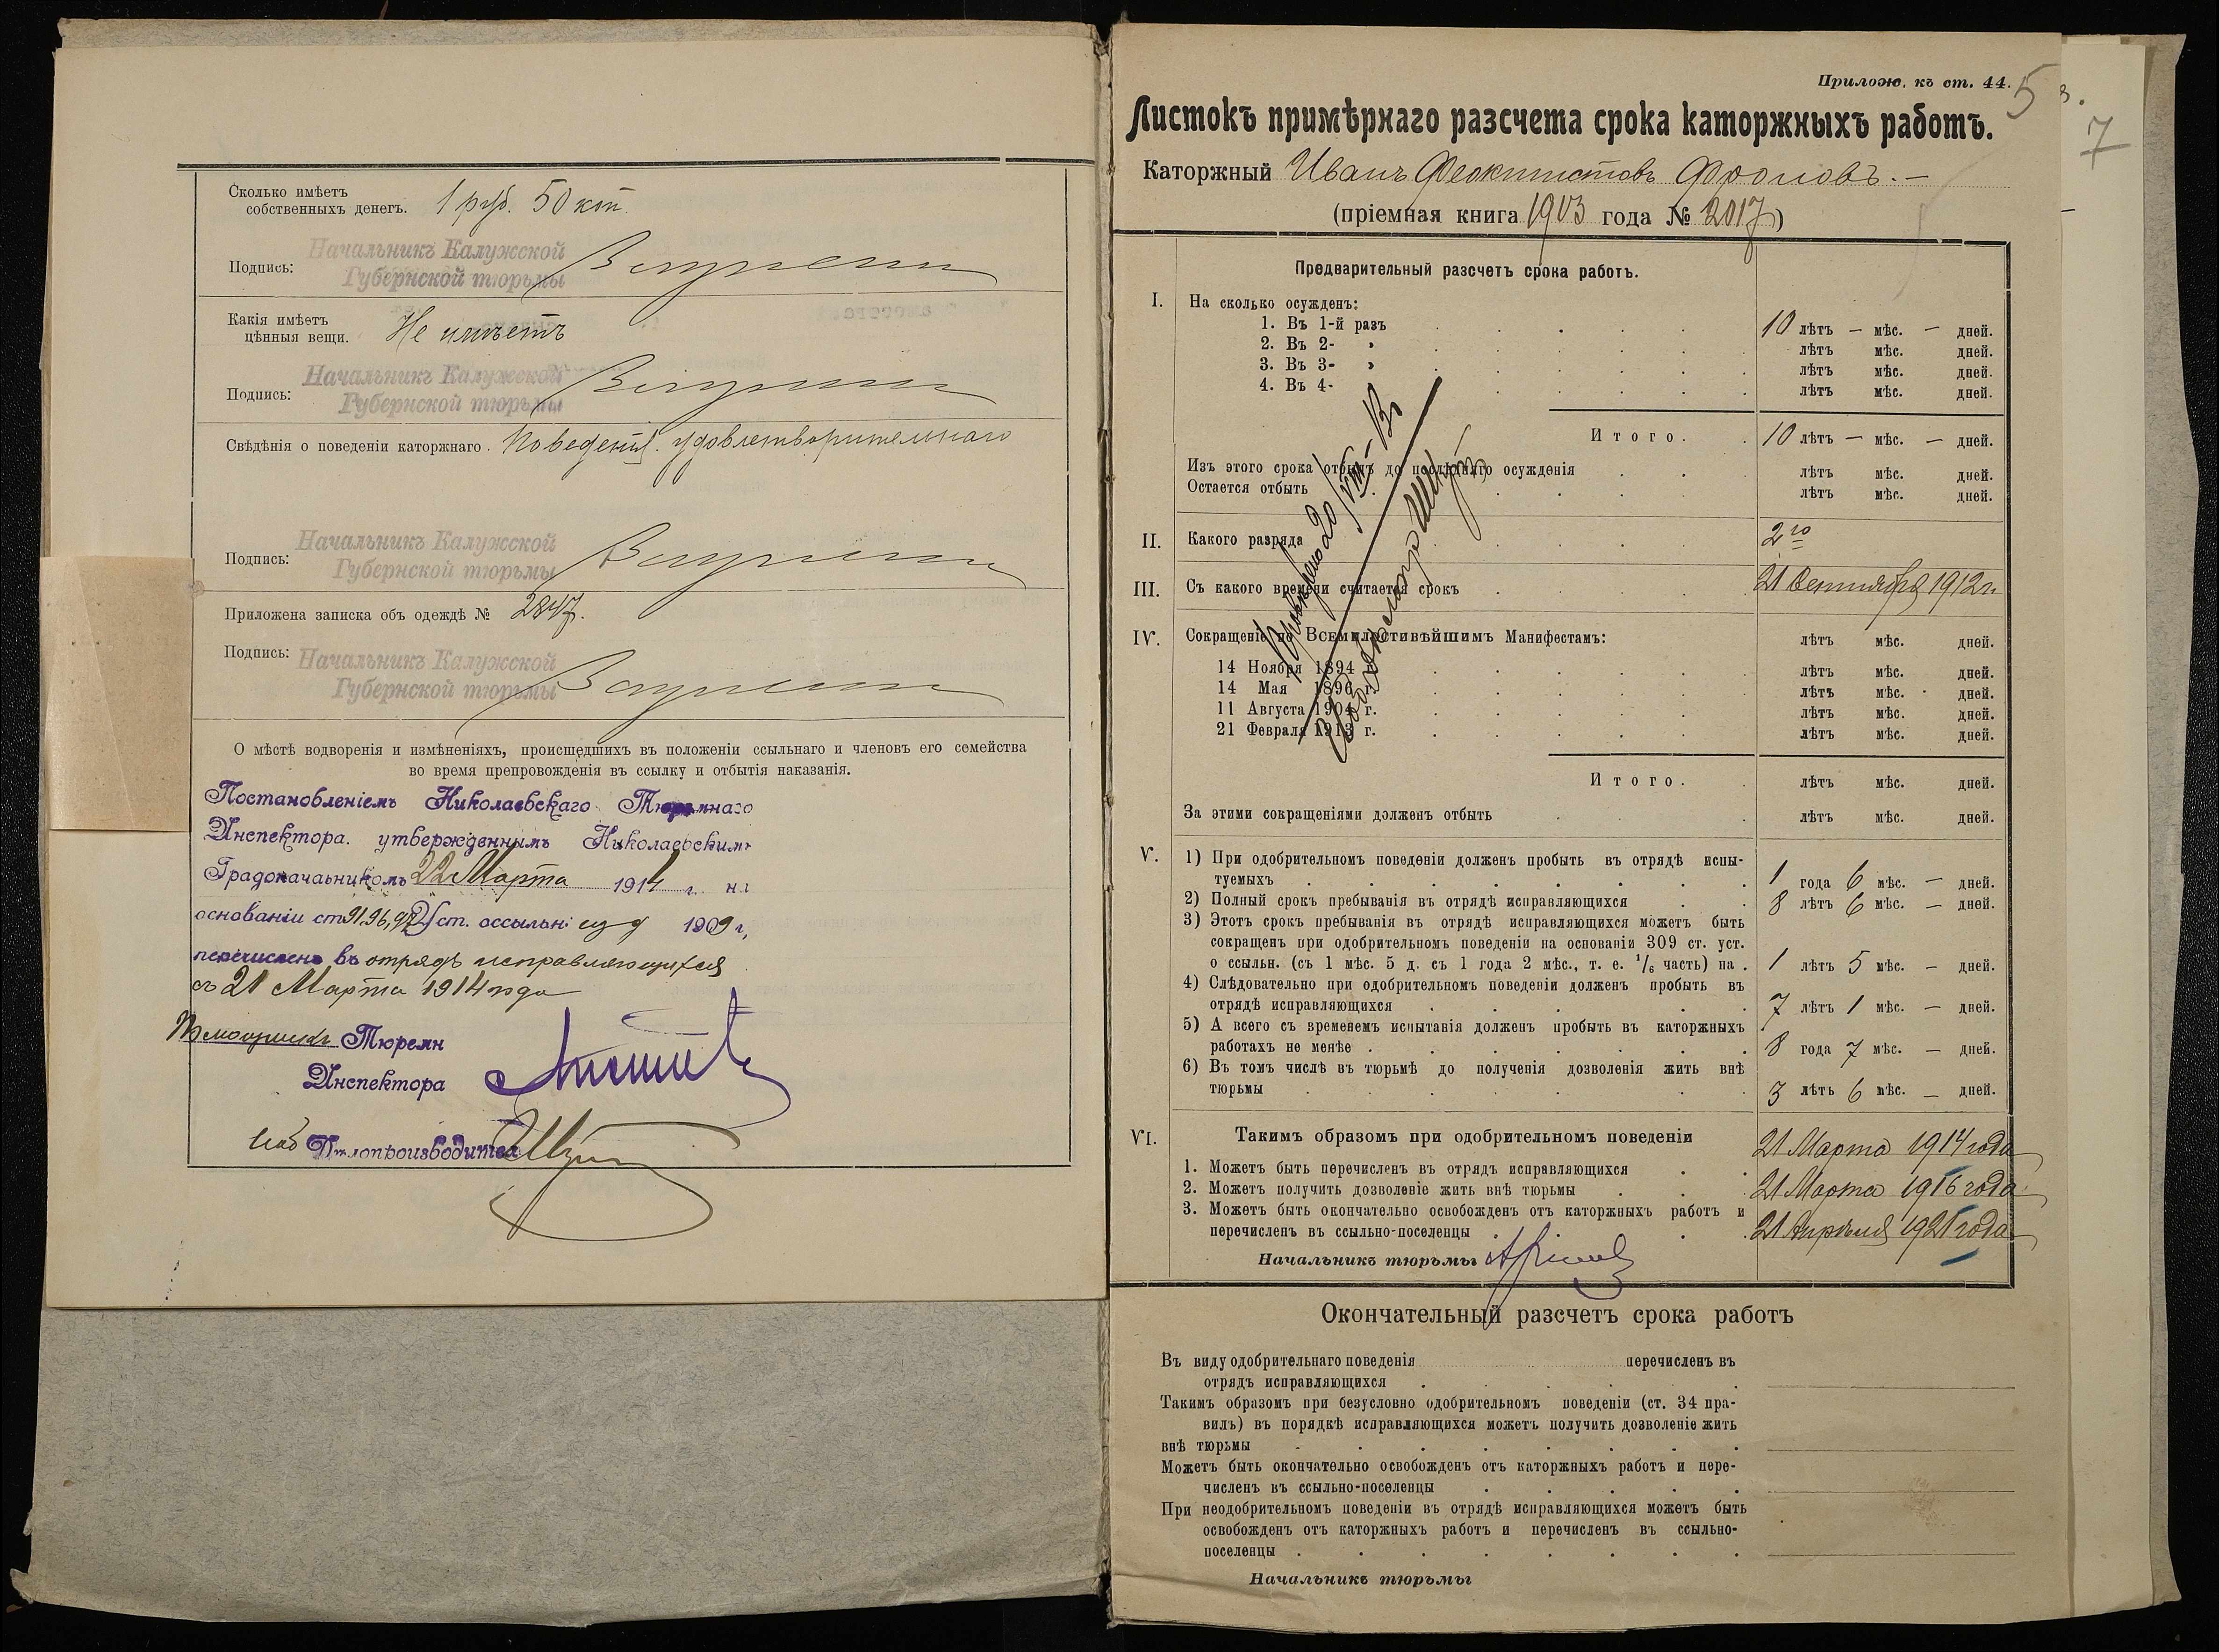 Сколько имѣетъ
собственныхъ денегъ. 1 руб. 50 коп.
Начальникъ Калужской
Подпись: Губернской тюрьмы
Какія имѣетъ
цѣнныя вещи. Не имѣетъ
Начальникъ Калужской
Подпись: Губернской тюрьмы
Свѣдѣнія о поведеніи каторжнаго. Поведенія удовлетворительнаго
Начальникъ Калужской
Подпись: Губернской тюрьмы
Приложена записка объ одеждѣ № 2847.
Подпись: Начальникъ Калужской
Губернской тюрьмы
О мѣстѣ водворенія и измѣненіяхъ, происшедшихъ въ положеніи ссыльнаго и членовъ его семейства
во время препровожденія въ ссылку и отбытія наказанія.
Постановленіемъ Николаевскаго Тюремнаго
Инспектора. утвержденнымъ Николаевскимъ
Градоначальникомъ 22 Марта 1914 г. на
основаніи ст 91, 96, Уст. о ссыльн: изд 1909 г,
перечисленъ въ отрядъ исправляющихся
съ 21 Марта 1914 года
Помощникъ Тюремн
Инспектора
Дѣлопроизводителя
Прилож. къ ст. 44.
5
7
Листокъ примѣрнаго разсчета срока каторжныхъ работъ.
Каторжный Иванъ Феоктистовъ Фроловъ. —
(пріемная книга 1913 года № 2017)
Предварительный разсчетъ срока работъ.
I. На сколько осужденъ:
1. Въ 1-й разъ 10 лѣтъ — мѣс. — дней.
2. Въ 2- » лѣтъ мѣс. дней.
3. Въ 3- » лѣтъ мѣс. дней.
4. Въ 4- лѣтъ мѣс. дней.
Итого. 10 лѣтъ — мѣс. — дней.
Изъ этого срока отбылъ до послѣдняго осужденія лѣтъ мѣс. дней.
Остается отбыть лѣтъ мѣс. дней.
II. Какого разряда 2го
III. Съ какого времени считается срокъ 21 Сентября 1912 г.
IV. Сокращеніе по Всемилостивѣйшимъ Манифестамъ: лѣтъ мѣс. дней.
14 Ноября 1894 г. лѣтъ мѣс. дней.
14 Мая 1896 г. лѣтъ мѣс. дней.
11 Августа 1904 г. лѣтъ мѣс. дней.
21 Февраля 1913 г. лѣтъ мѣс. дней.
Итого. лѣтъ мѣс. дней.
За этими сокращеніями долженъ отбыть лѣтъ мѣс. дней.
Провѣрено 20/VIII-13
V. 1) При одобрительномъ поведеніи долженъ пробыть въ отрядѣ испы-
туемыхъ 1 года 6 мѣс. — дней.
2) Полный срокъ пребыванія въ отрядѣ исправляющихся 8 лѣтъ 6 мѣс. — дней.
3) Этотъ срокъ пребыванія въ отрядѣ исправляющихся можетъ быть
сокращенъ при одобрительномъ поведеніи на основаніи 309 ст. уст.
о ссыльн. (съ 1 мѣс. 5 д. съ 1 года 2 мѣс., т. е. 1/6 часть) на . 1 лѣтъ 5 мѣс. — дней.
4) Слѣдовательно при одобрительномъ поведеніи долженъ пробыть въ
отрядѣ исправляющихся 7 лѣтъ 1 мѣс. — дней.
5) А всего съ временемъ испытанія долженъ пробыть въ каторжныхъ
работахъ не менѣе . 8 года 7 мѣс. — дней.
6) Въ томъ числѣ въ тюрьмѣ до полученія дозволенія жить внѣ
тюрьмы 3 лѣтъ 6 мѣс. — дней.
VI. Такимъ образомъ при одобрительномъ поведеніи
1. Можетъ быть перечисленъ въ отрядъ исправляющихся 21 Марта 1914 года
2. Можетъ получить дозволеніе жить внѣ тюрьмы 21 Марта 1916 года
3. Можетъ быть окончательно освобожденъ отъ каторжныхъ работъ и
перечисленъ въ ссыльно-поселенцы 21 Апрѣля 1921 года
Начальникъ тюрьмы
Окончательный разсчетъ срока работъ
Въ виду одобрительнаго поведенія перечисленъ въ
отрядъ исправляющихся
Такимъ образомъ при безусловно одобрительномъ поведеніи (ст. 34 пра-
вилъ) въ порядкѣ исправляющихся можетъ получить дозволеніе жить
внѣ тюрьмы
Можетъ быть окончательно освобожденъ отъ каторжныхъ работъ и пере-
численъ въ ссыльно-поселенцы
При неодобрительномъ поведеніи въ отрядѣ исправляющихся можетъ быть
освобожденъ отъ каторжныхъ работъ и перечисленъ въ ссыльно-
поселенцы
Начальникъ тюрьмы